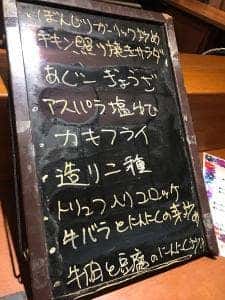 ・ぼんじりガーリック炒め
・チキン照り焼きサラダ
・あじーぎょうざ
・アスパラ塩ゆで
・カキフライ
・造り二種
・トリュフ入りコロッケ
・牛バラとにんにくの芽炒め
・牛白と豆腐のにんにく